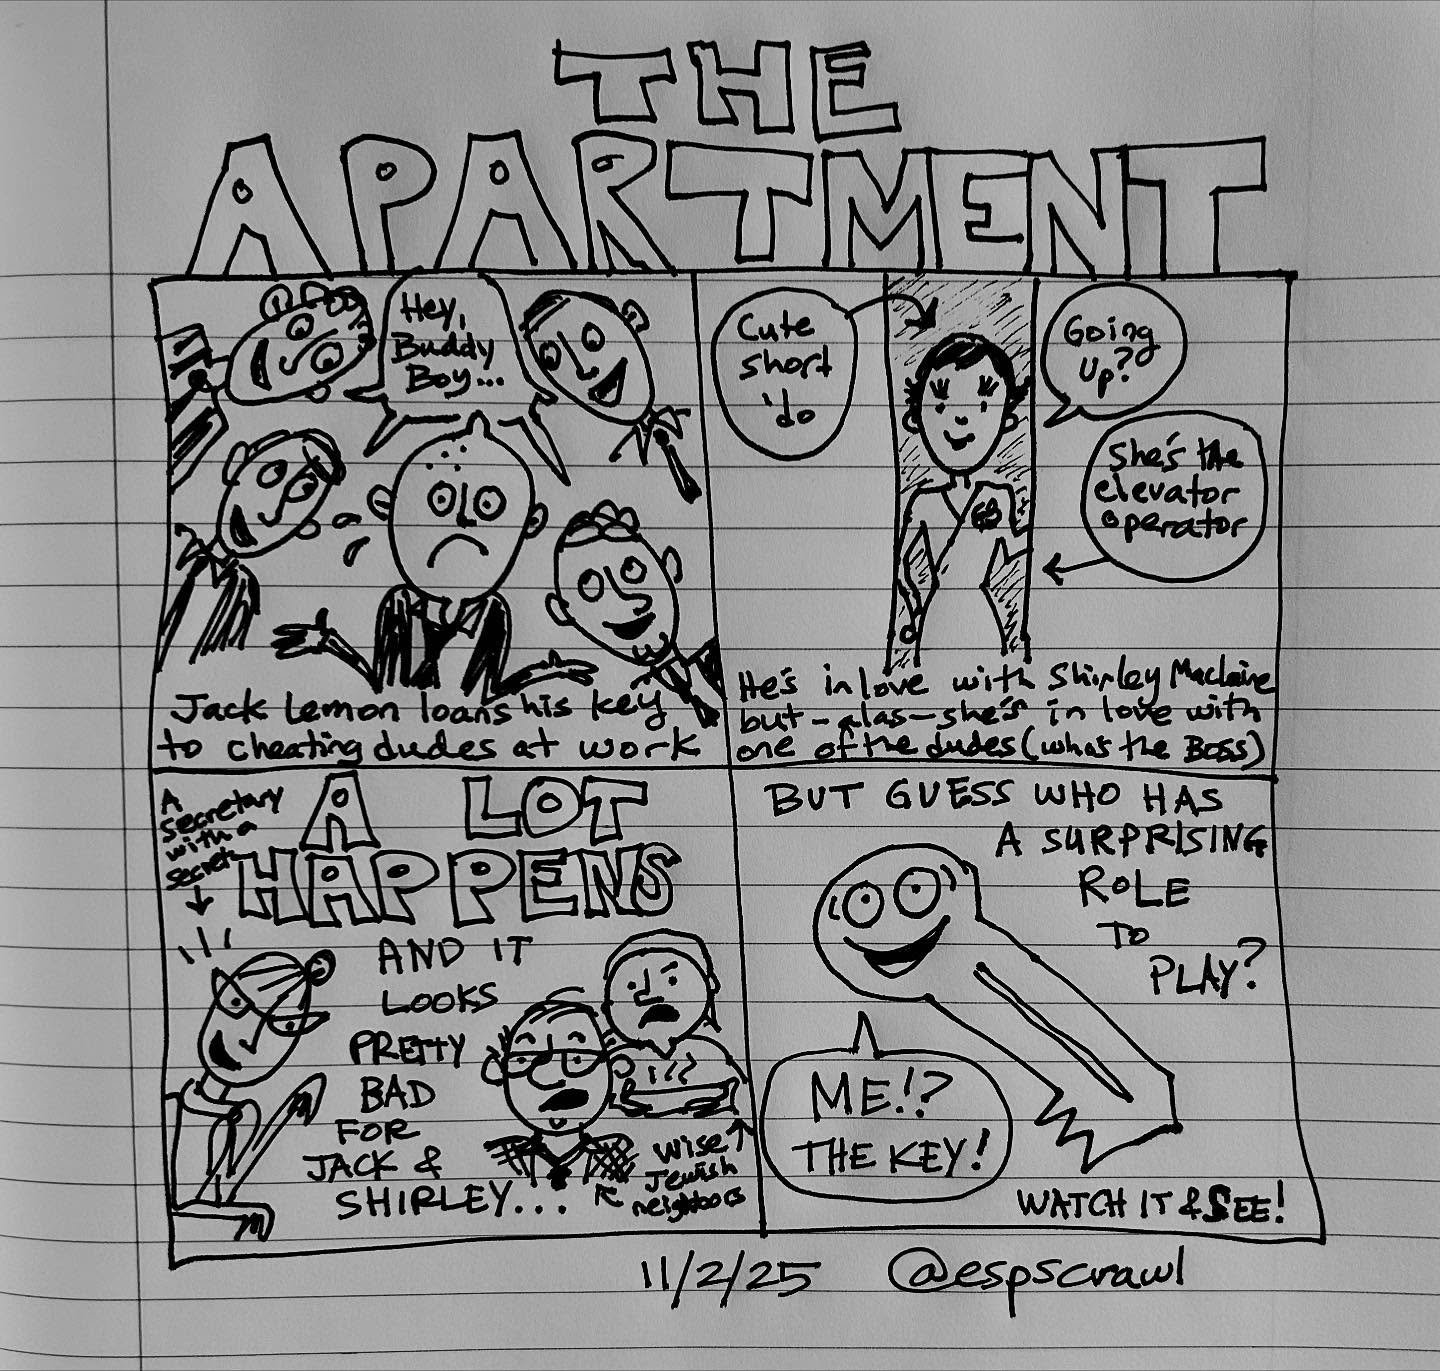 THE
APARTMENT
Hey,
Buddy
Boy...
Jack Lemon loans his key
to cheating dudes at work
Cute
short
'do
Going
Up?
She's the
elevator
operator
He's in love with Shirley Maclaine
but-alas-she's in love with
one of the dudes (what's the BOSS)
A
Secretary
with a
secret
A LOT
HAPPENS
AND IT
LOOKS
PRETTY
BAD
FOR
JACK &
SHIRLEY...
Wise
Jewish
neighbors
BUT GUESS WHO HAS
A SURPRISING
ROLE
TO
PLAY?
ME!?
THE KEY!
WATCH IT & SEE!
11/2/25 @espscrawl